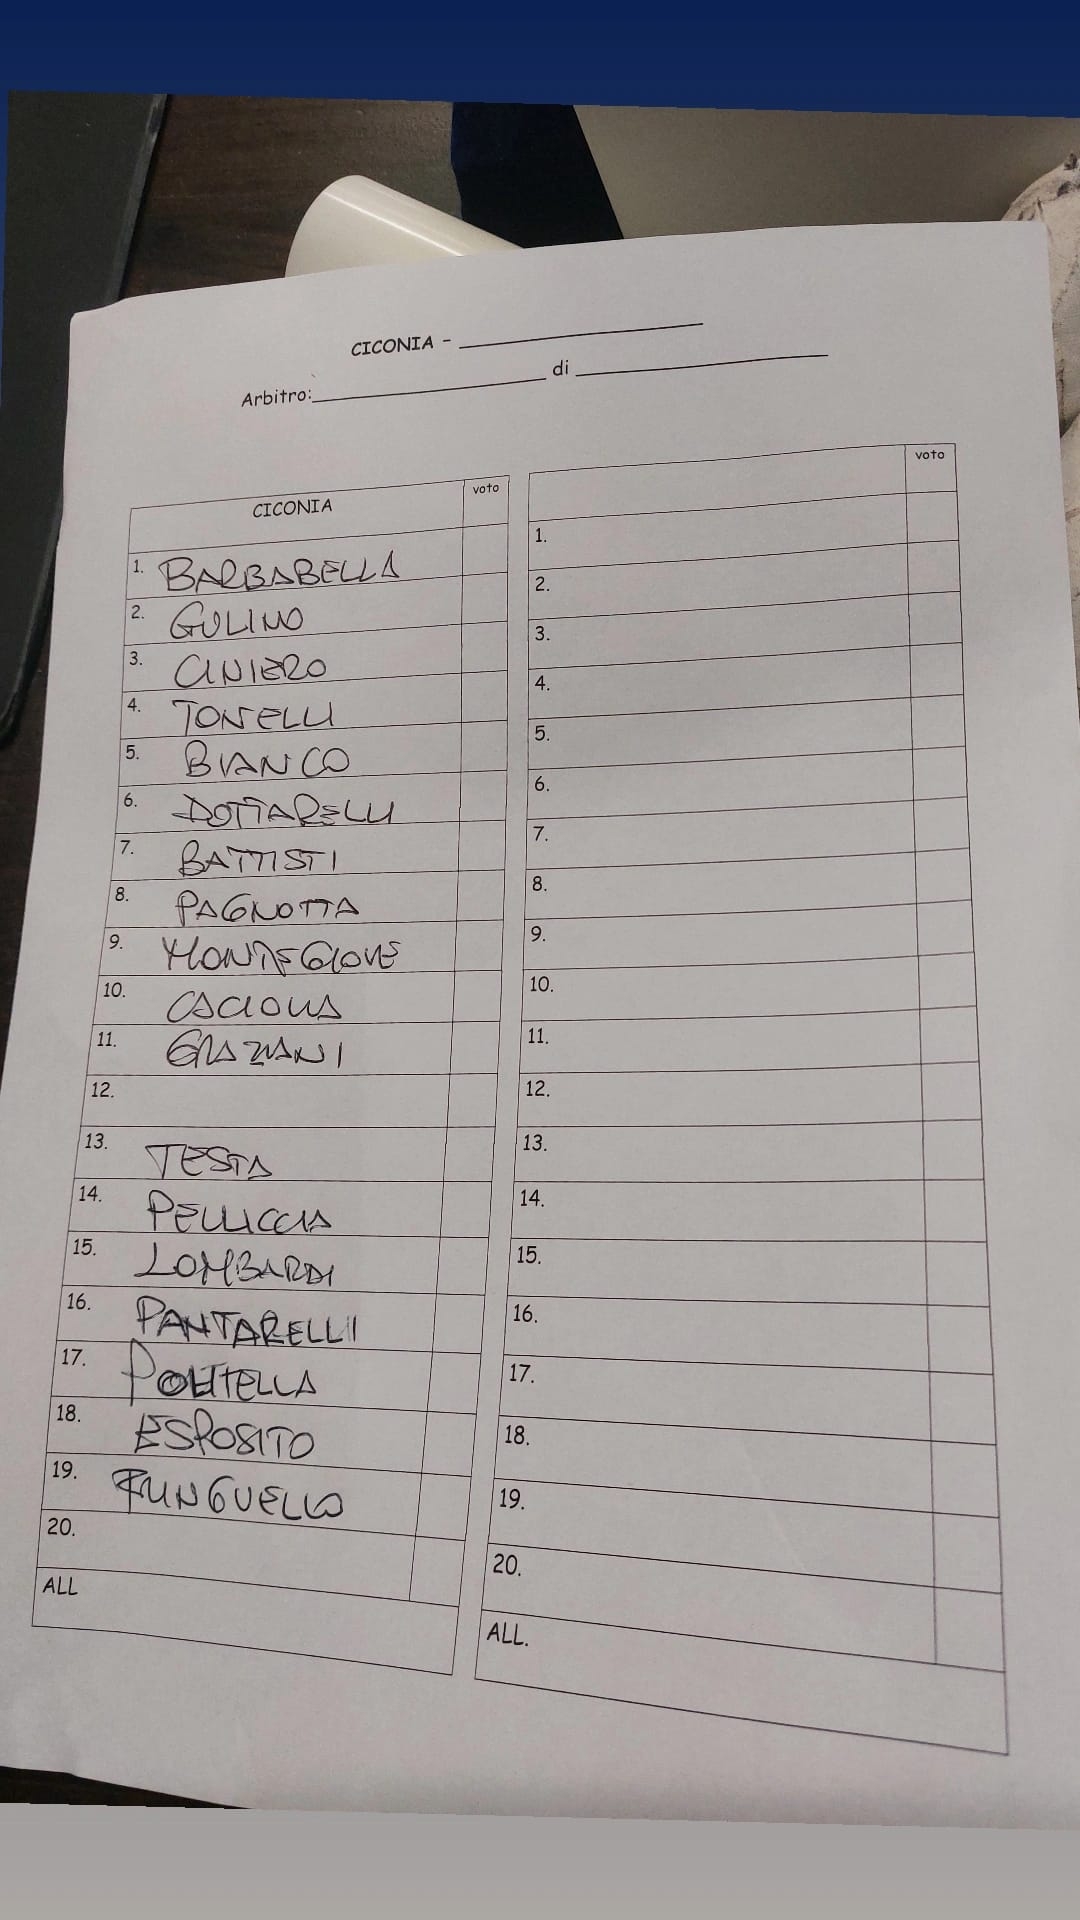 CICONIA - ____________
Arbitro: ____________ di ____________
CICONIA voto
1. BARBABELLA
2. GULINO
3. CINIERO
4. TONELLI
5. BIANCO
6. DOTTARELLI
7. BATTISTI
8. PAGNOTTA
9. MONTEGIOVE
10. CACIOLLA
11. GRAZIANI
12.
13. TESTA
14. PELLICCIA
15. LOMBARDI
16. PANTARELLI
17. POLITELLA
18. ESPOSITO
19. FUNGUELLO
20.
ALL
voto
1.
2.
3.
4.
5.
6.
7.
8.
9.
10.
11.
12.
13.
14.
15.
16.
17.
18.
19.
20.
ALL.